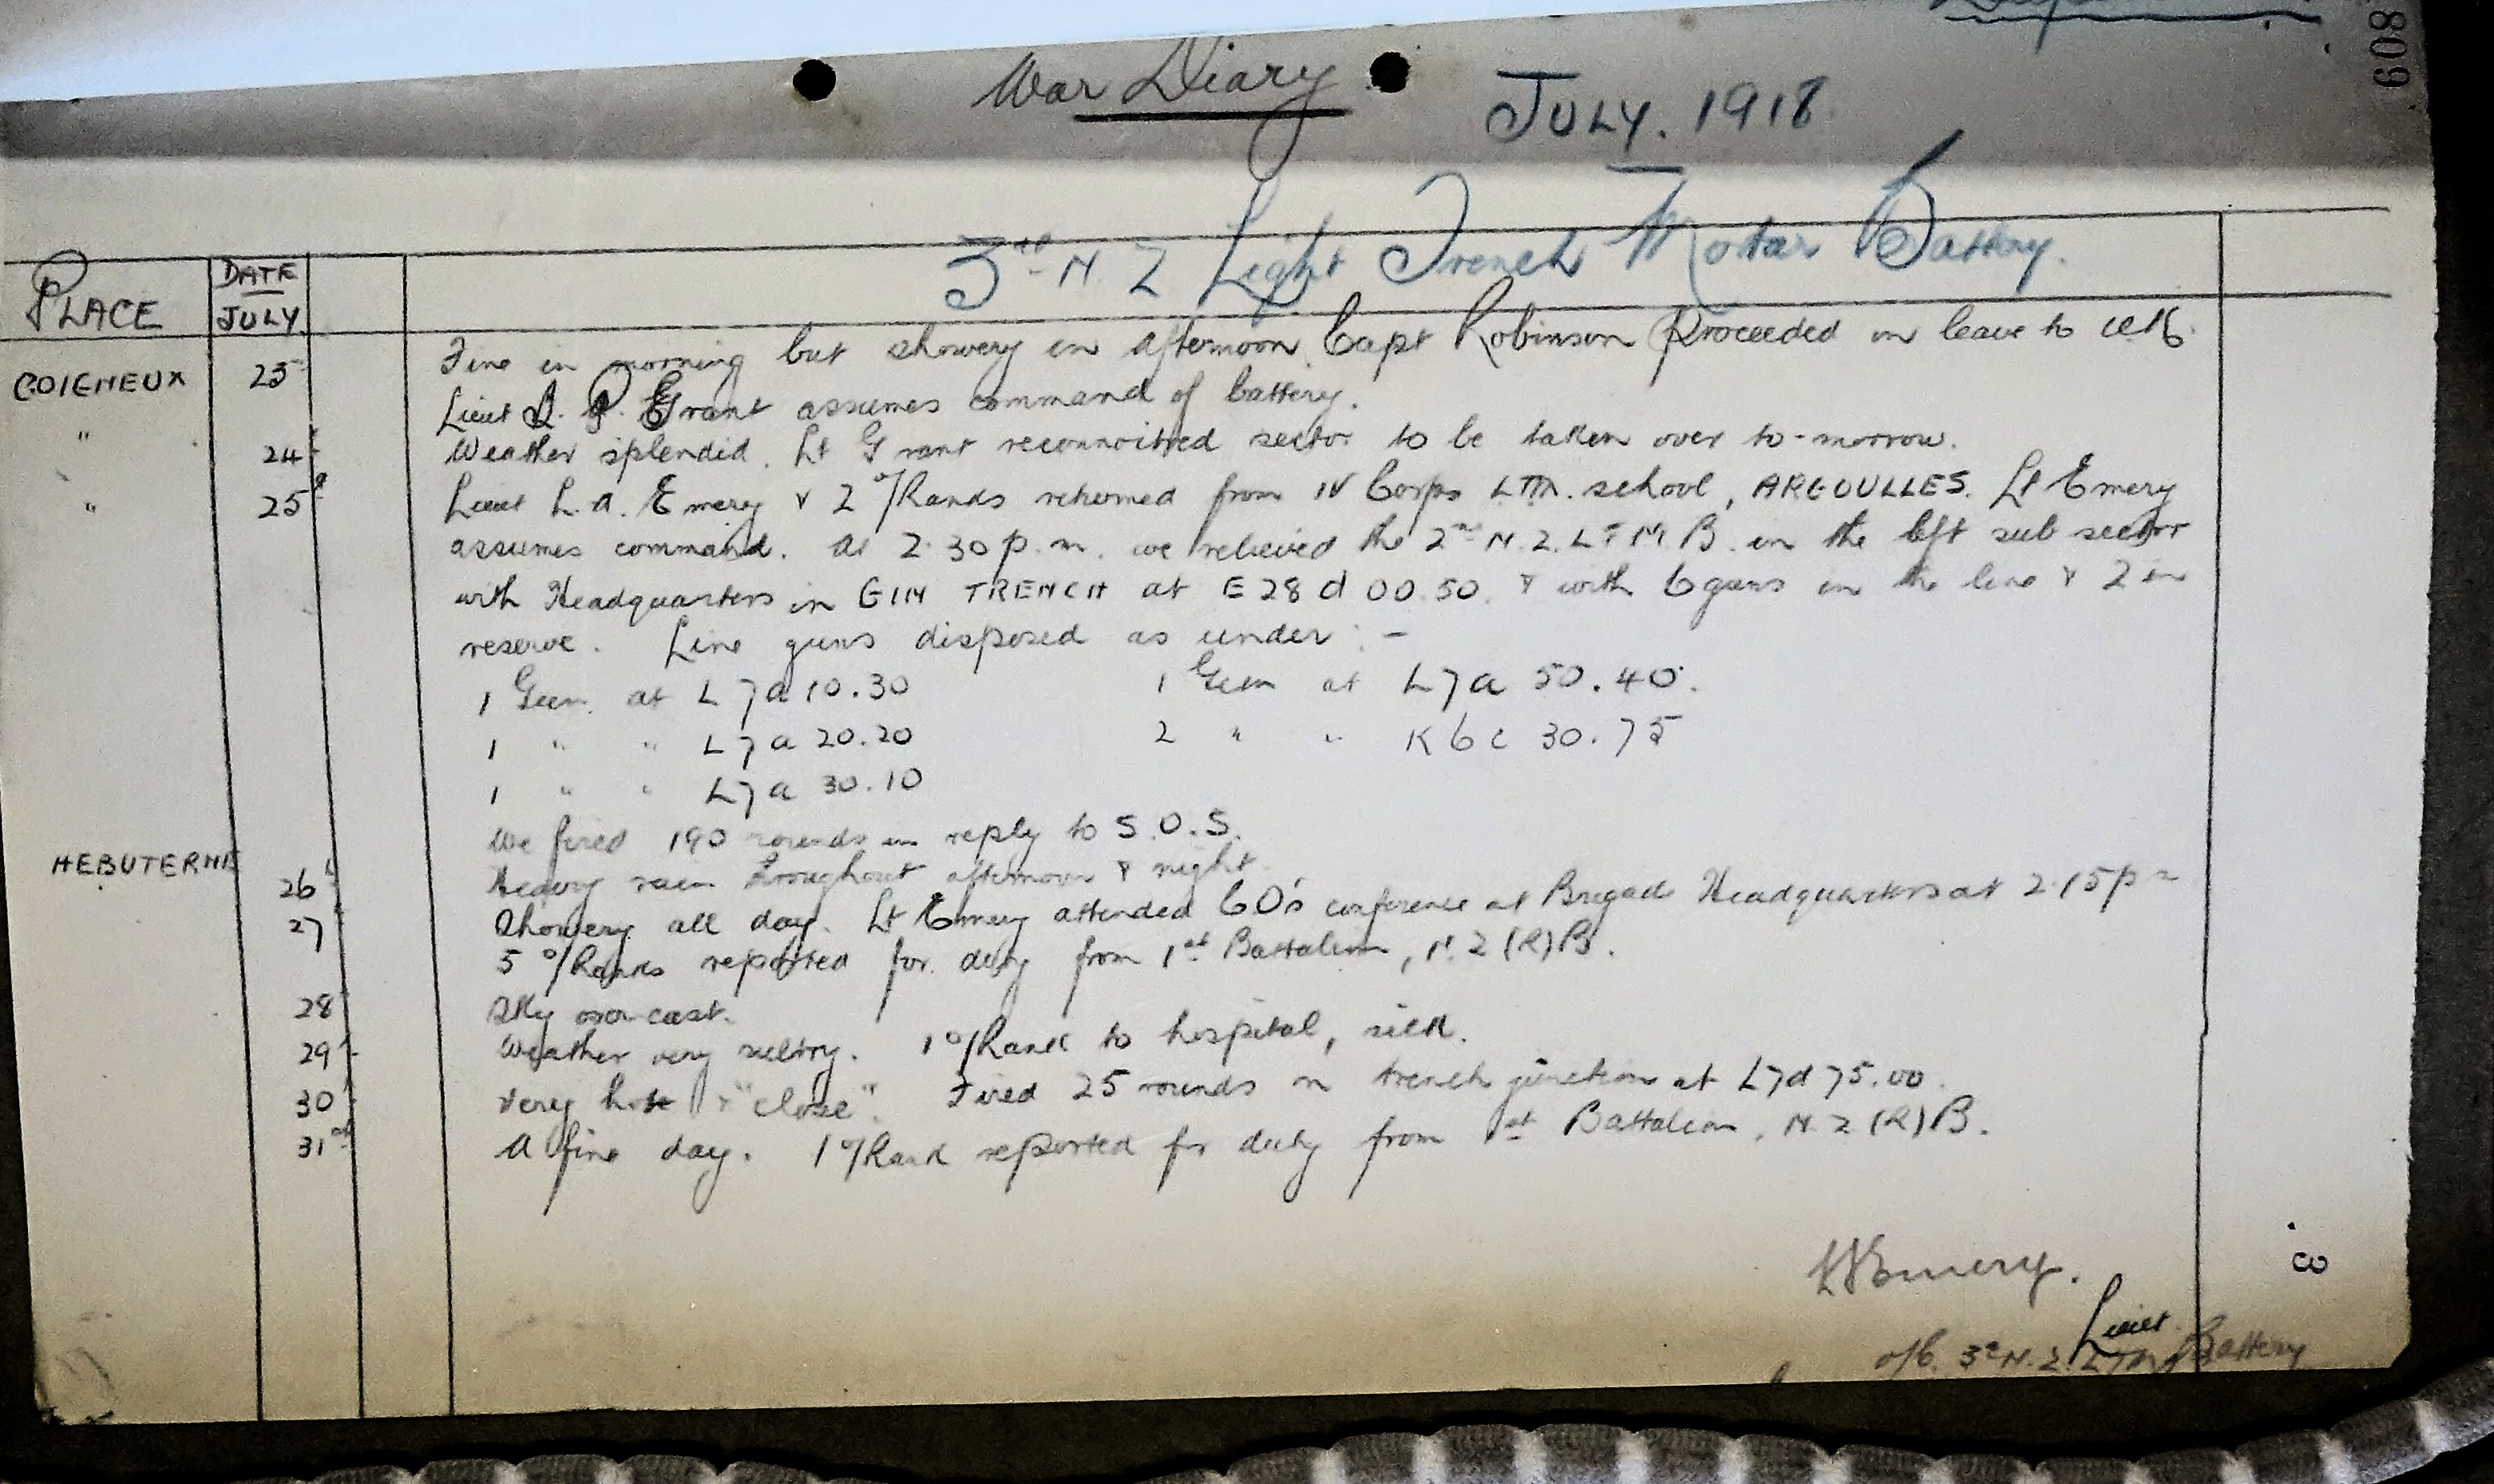 809
War Diary
JULY. 1918
3rd N.Z Light Trench Motar Battery.
PLACE DATE JULY
COIGNEUX 23rd Fine in morning but showery in afternoon. Capt Robinson Proceeded on leave to U.K.
Lieut P. Grant assumes command of battery.
" 24th Weather splendid. Lt Grant reconnoitred sector to be taken over to-morrow.
" 25th Lieut L.A. Emery & 2 O/Ranks returned from IV Corps LTM. school, ARGOULLES. Lt Emery
assumes command. At 2.30 p.m. we relieved the 2nd N.Z. LTMB. in the left sub sector
with Headquarters in GIN TRENCH at E 28 d 00.50. & with 6 guns in the line & 2 in
reserve. Line guns disposed as under :-
1 Gun at L7a 10.30 1 Gun at L7a 50.40.
1 " " L7a 20.20 2 " " K6c 30.75
1 " " L7a 30.10
We fired 190 rounds in reply to S.O.S.
HEBUTERNE 26th Heavy rain throughout afternoon & night.
27th Showery all day. Lt Emery attended CO's conference at Brigade Headquarters at 2.15 pm
5 O/Ranks reported for duty from 1st Battalion, N.Z (R) B.
28th Sky over-cast.
29th Weather very sultry. 1 O/Rank to hospital, sick.
30th Very hot & "close". Fired 25 rounds on trench junction at L7d 75.00.
31st A fine day. 1 O/Rank reported for duty from 1st Battalion, N.Z (R) B.
LAEmery.
Lieut
o/c. 3rd N.Z. LTM Battery
3